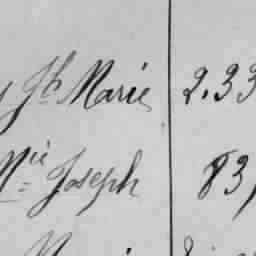 Jh Marie 2.33
Mie Joseph 83,